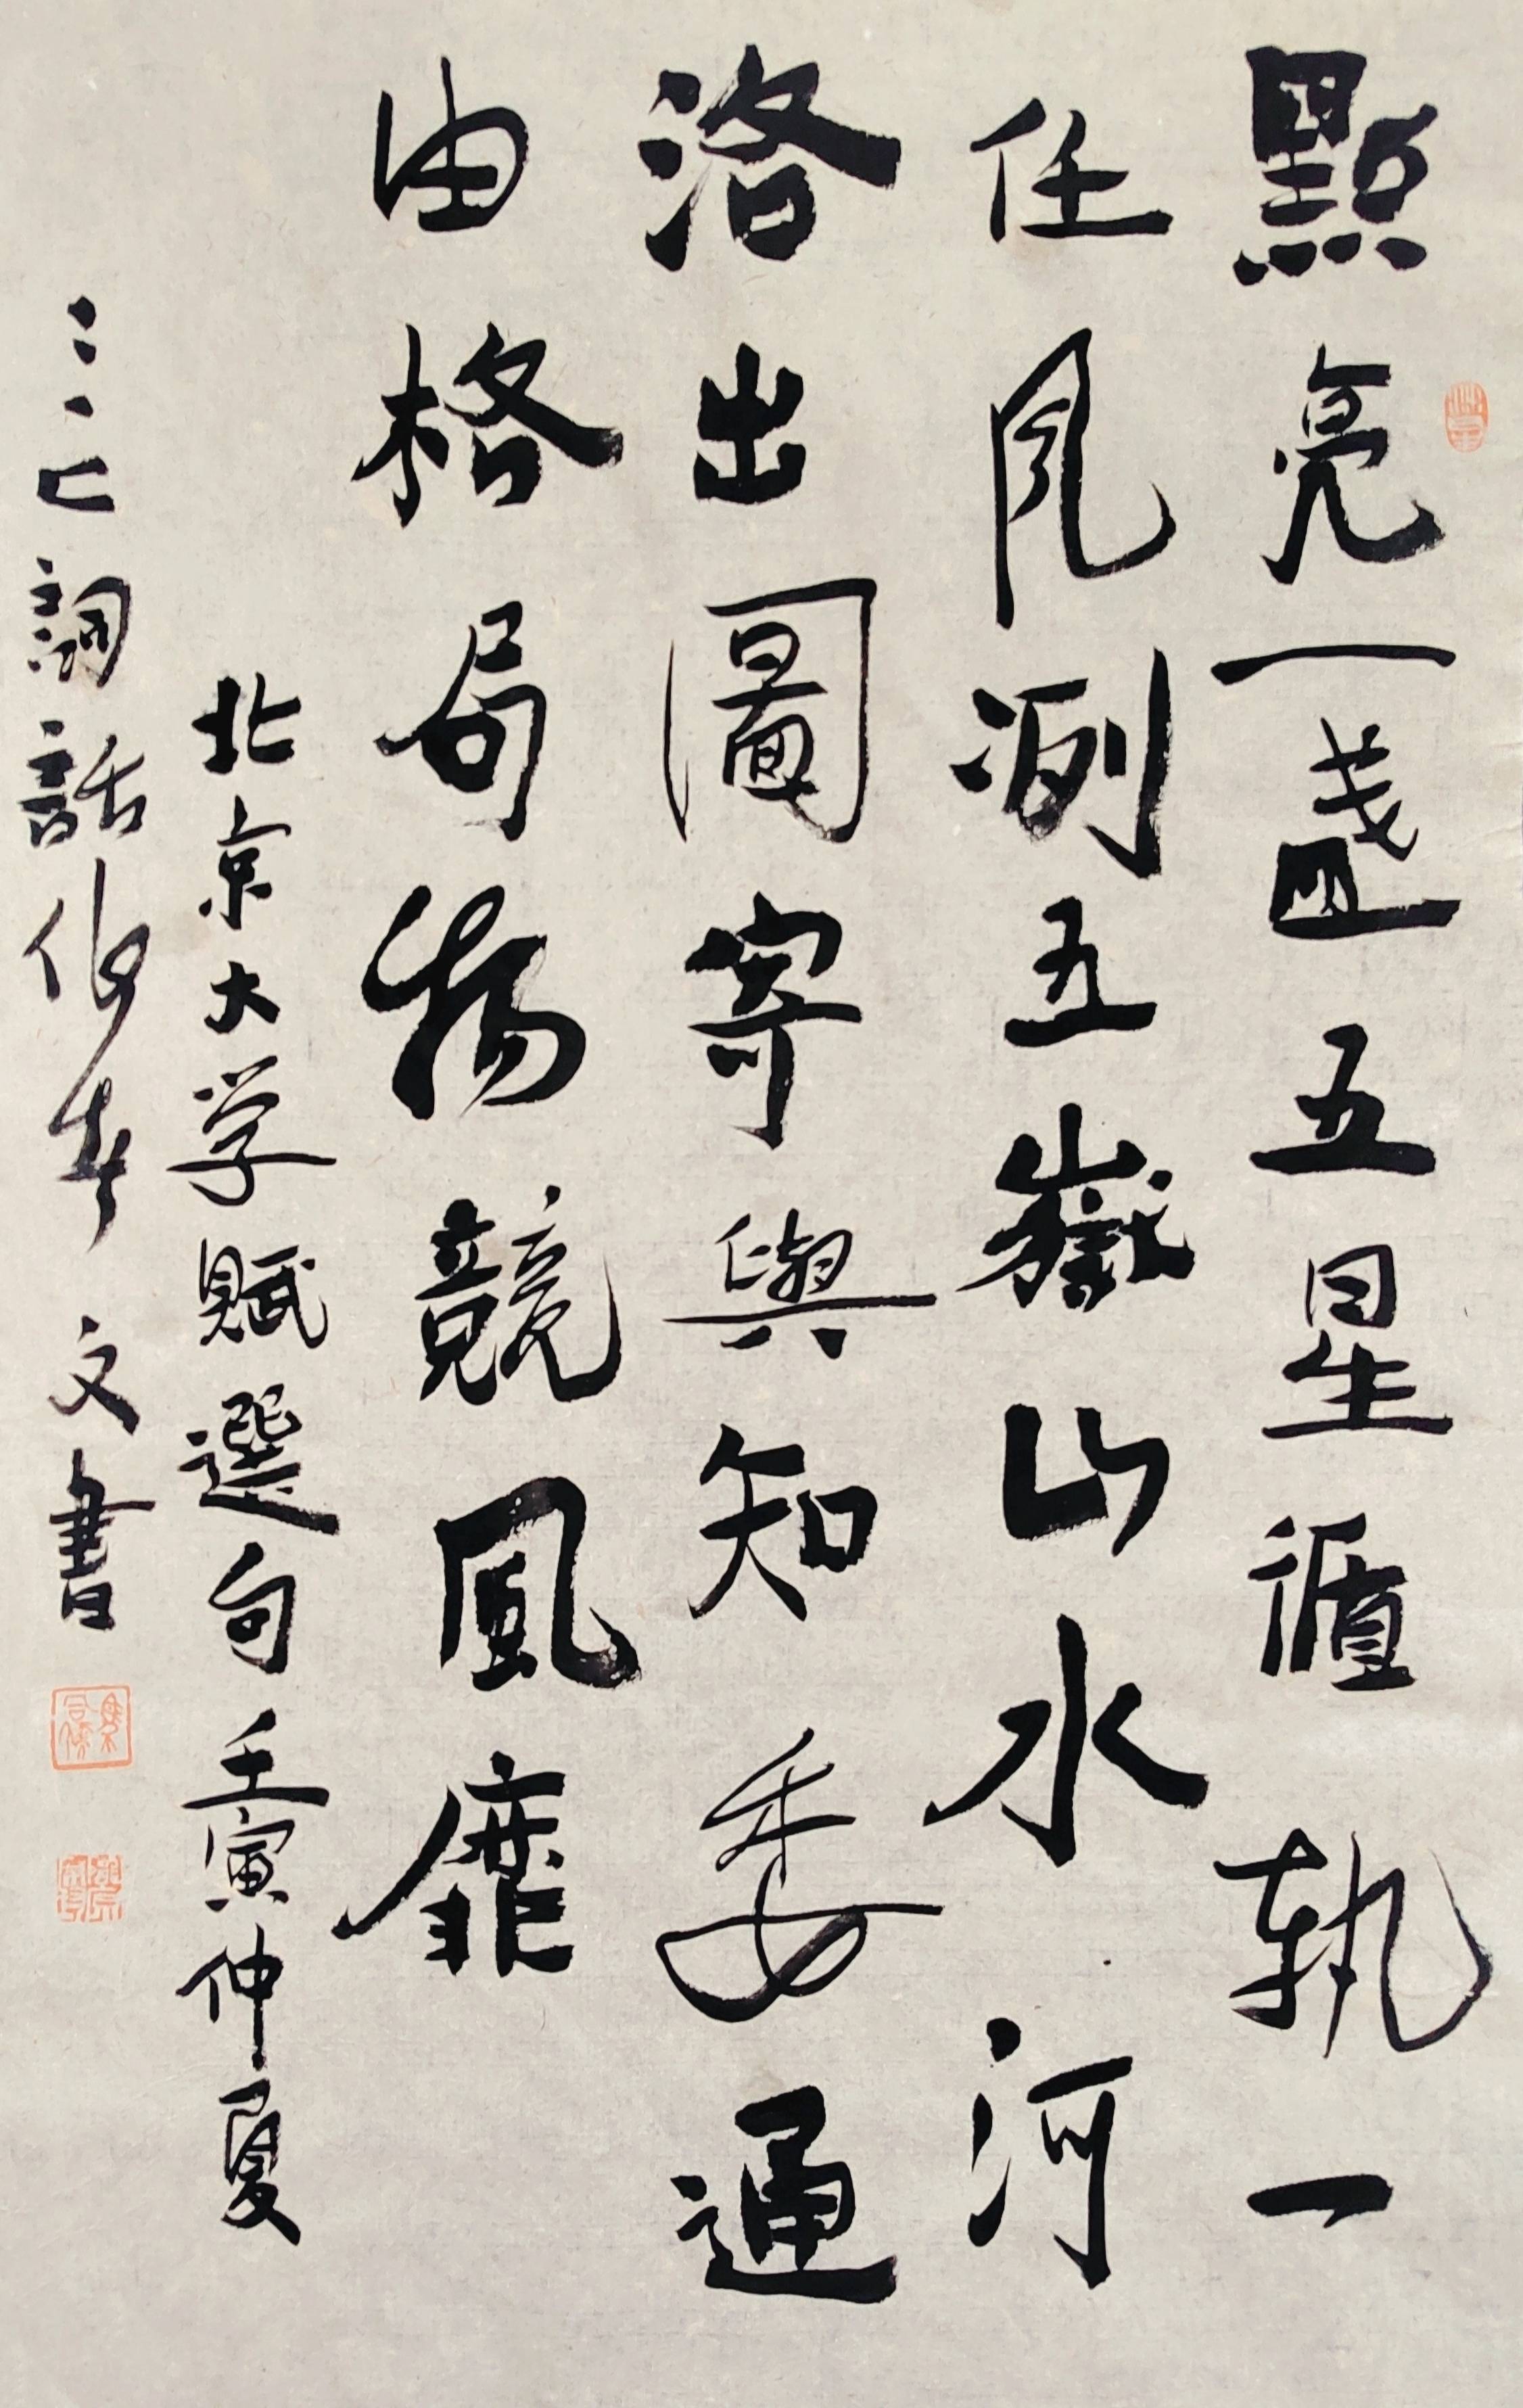 點亮一盞五星循執一
任风冽五嶽山水河
洛出圖寄與知委通
由格局物競風靡
北京大学賦選句壬寅仲夏
詞話文書